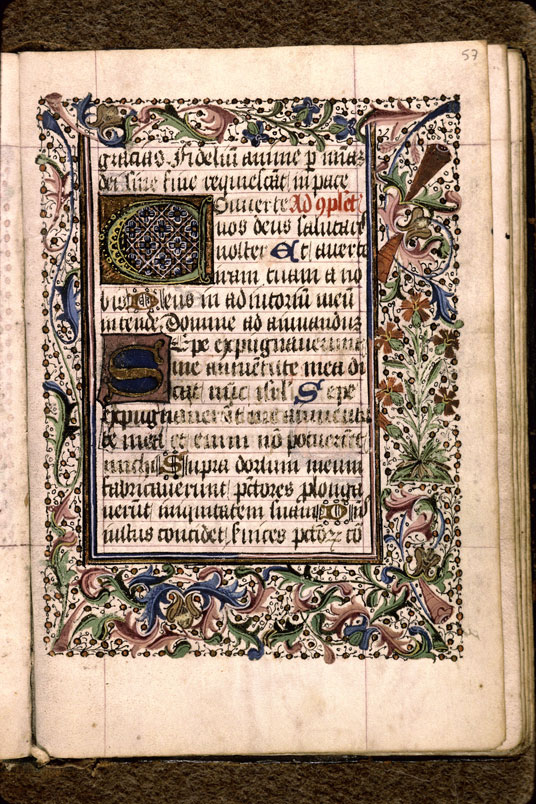 57
gracias. Fideliū anime p mīaz
dei sine fine requiescāt in pace
Converte Ad 9plet
nos deus salutaris
noster Et averte
iram tuam a no
bis Deus in adiutoriū meū
intende. Domine ad adiuvanduz
Sepe expugnaverunt
me a iuvētute mea di
cat nūc isrl. Sepe
expugnaverūt me a iuvētu
te mea etenim nō potuerūt
michi Supra dorsum meum
fabricaverunt pctōres plonga
verūt iniquitatem suam Dn̄s
iustus concidet cervices pctoꝝ cō